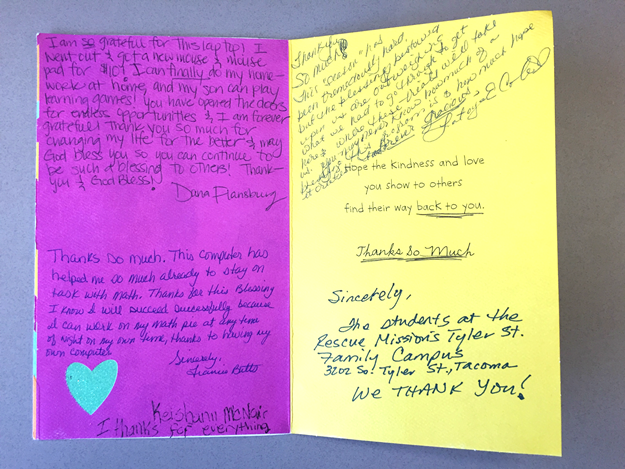 I am so grateful for this laptop! I
went out & got a new mouse & mouse
pad for $10! I can finally do my home-
work at home, and my son can play
learning games! you have opened the doors
for endless opportunities & I am forever
grateful! Thank you so much for
changing my life for the better & may
God bless you so you can continue to
be such a blessing to others! Thank-
you & God Bless!
Dana Flansburg
Thanks so much. This computer has
helped me so much already to stay on
task with math. Thanks for this Blessing
I know I will succeed successfully because
I can work on my math at any time
of night on my own time, thanks to having my
own computer
Sincerely,
Keishann McNair
I thanks for everything
Thank you
So much!
This season has
been tremendously hard.
but the blessings bestowed
upon us are outweighing
what we had to go through to get
here
Hope the kindness and love
you show to others
find their way back to you.
Thanks So Much
Sincerely,
The students at the
Rescue Mission's Tyler St.
Family Campus
3202 So. Tyler St., Tacoma
We THANK YOU!